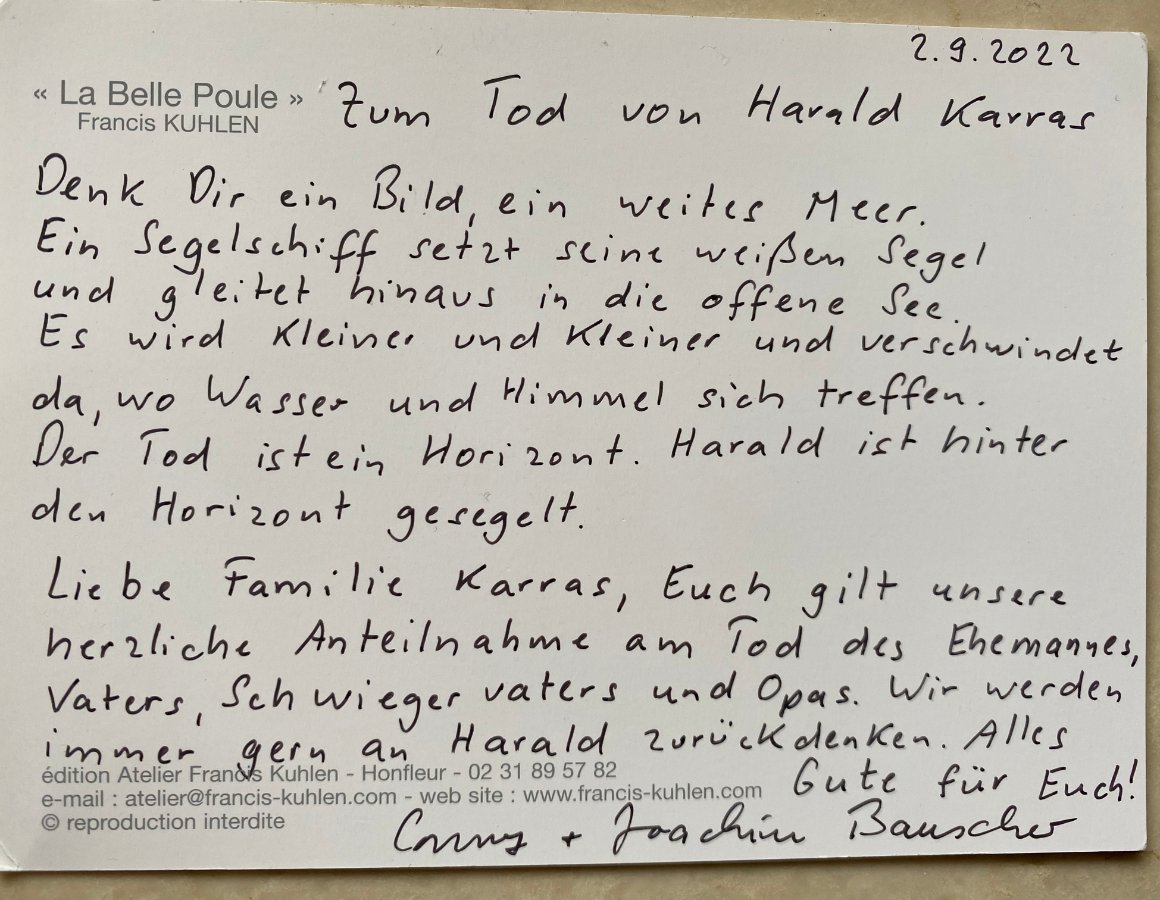 2.9.2022
« La Belle Poule »
Francis KUHLEN
Zum Tod von Harald Karras
Denk Dir ein Bild, ein weites Meer.
Ein Segelschiff setzt seine weißen Segel
und gleitet hinaus in die offene See.
Es wird kleiner und kleiner und verschwindet
da, wo Wasser und Himmel sich treffen.
Der Tod ist ein Horizont. Harald ist hinter
den Horizont gesegelt.
Liebe Familie Karras, Euch gilt unsere
herzliche Anteilnahme am Tod des Ehemannes,
Vaters, Schwiegervaters und Opas. Wir werden
immer gern an Harald zurückdenken. Alles
Gute für Euch!
édition Atelier Francis Kuhlen - Honfleur - 02 31 89 57 82
e-mail : atelier@francis-kuhlen.com - web site : www.francis-kuhlen.com
© reproduction interdite
Conny + Joachim Bauscher